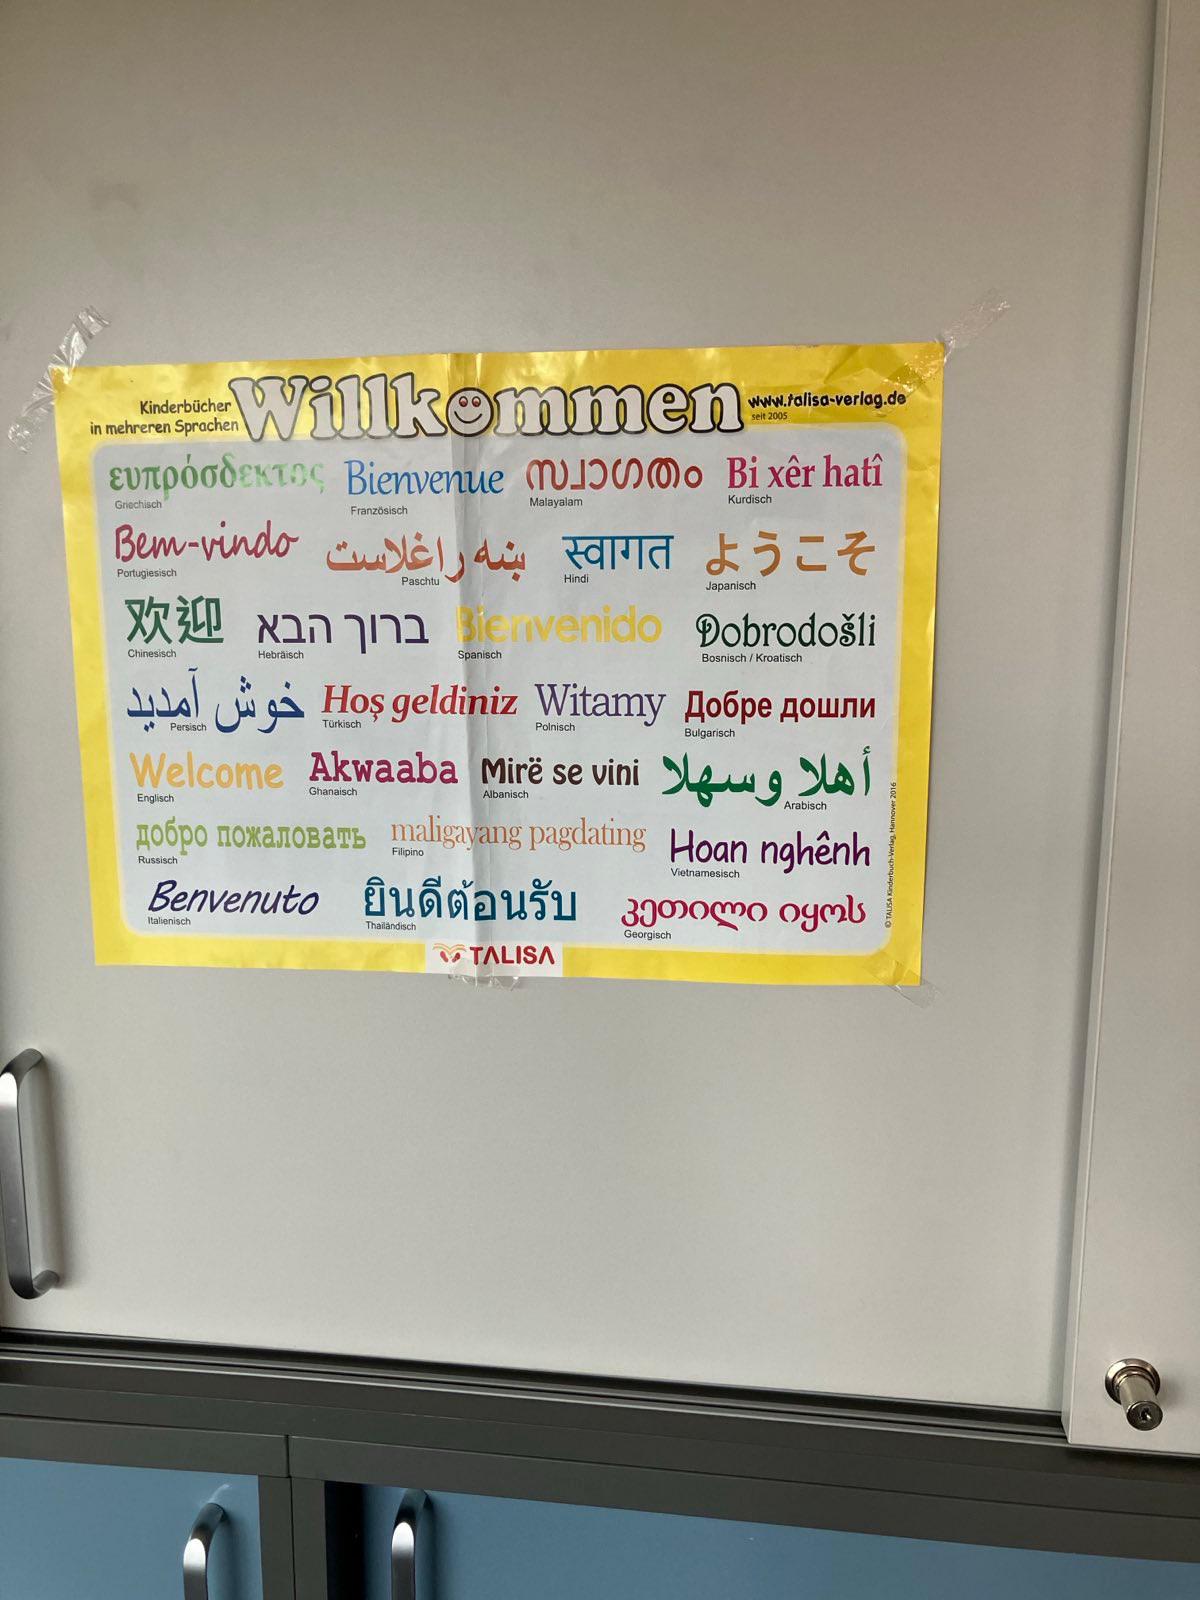 Kinderbücher
in mehreren Sprachen
Willkommen
www.talisa-verlag.de
seit 2005
ευπρόσδεκτος Bienvenue സ്വാഗതം Bi xêr hatî
Griechisch Französisch Malayalam Kurdisch
Bem-vindo ښه راغلاست स्वागत ようこそ
Portugiesisch Paschtu Hindi Japanisch
欢迎 ברוך הבא Bienvenido Dobrodošli
Chinesisch Hebräisch Spanisch Bosnisch / Kroatisch
خوش آمدید Hoş geldiniz Witamy Добре дошли
Persisch Türkisch Polnisch Bulgarisch
Welcome Akwaaba Mirë se vini أهلا وسهلا
Englisch Ghanaisch Albanisch Arabisch
добро пожаловать maligayang pagdating Hoan nghênh
Russisch Filipino Vietnamesisch
Benvenuto ยินดีต้อนรับ კეთილი იყოს
Italienisch Thailändisch Georgisch
© TALISA Kinderbuch-Verlag, Hannover 2016
TALISA